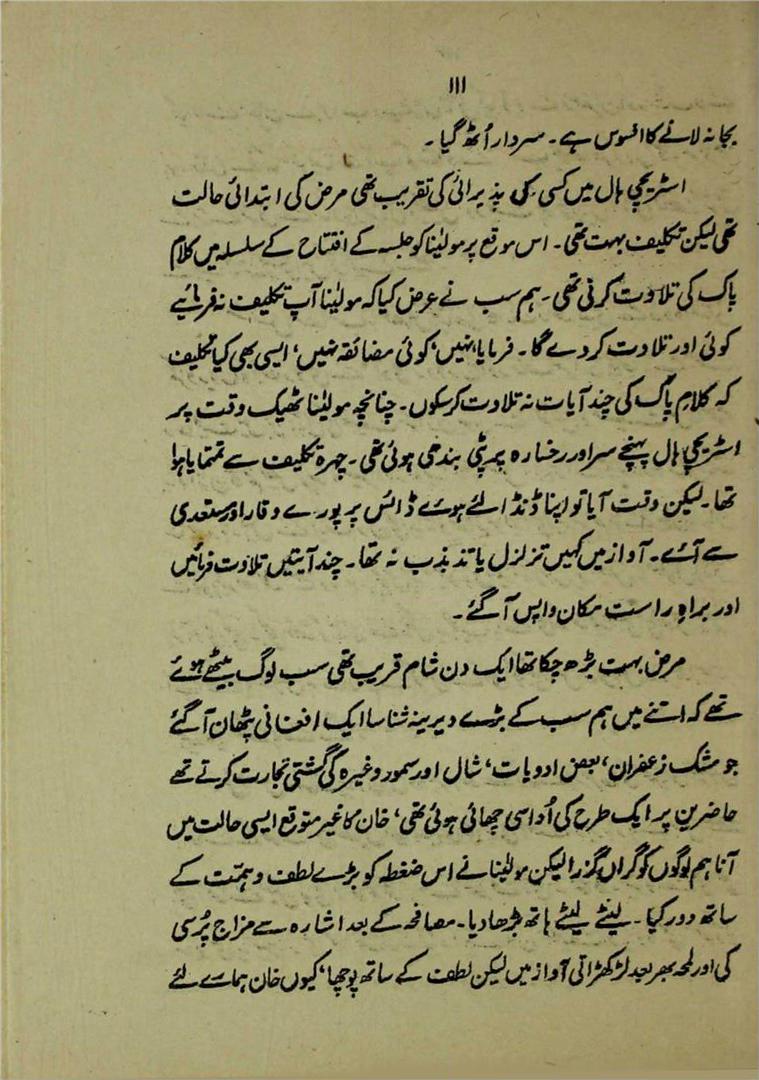 ۱۱۱
بجا نہ لانے کا افسوس ہے۔ سردار اُٹھ گیا۔
اسٹریچی ہال میں کسی کی پذیرائی کی تقریب تھی مرض کی ابتدائی حالت
تھی لیکن تکلیف بہت تھی۔ اس موقع پر مولیٰنا کو جلسہ کے افتتاح کے سلسلہ میں کلام
پاک کی تلاوت کرنی تھی۔ ہم سب نے عرض کیا کہ مولیٰنا آپ تکلیف نہ فرمائیے
کوئی اور تلاوت کر دے گا۔ فرمایا، نہیں، کوئی مضائقہ نہیں، ایسی بھی کیا تکلیف
کہ کلامِ پاک کی چند آیات نہ تلاوت کر سکوں۔ چنانچہ مولیٰنا ٹھیک وقت پر
اسٹریچی ہال پہنچے سر اور رخسارہ پر پٹی بندھی ہوئی تھی۔ چہرہ تکلیف سے تمتمایا ہوا
تھا۔ لیکن وقت آیا تو اپنا ڈنڈا لئے ہوئے ڈائس پر پورے وقار اور مستعدی
سے آئے۔ آواز میں کہیں تزلزل یا تذبذب نہ تھا۔ چند آیتیں تلاوت فرمائیں
اور براہِ راست مکان واپس آ گئے۔
مرض بہت بڑھ چکا تھا ایک دن شام قریب تھی سب لوگ بیٹھے ہوئے
تھے کہ اتنے میں ہم سب کے بڑے دیرینہ شناسا ایک افغانی پٹھان آ گئے
جو مشک زعفران، بعض ادویات، شال اور سمور وغیرہ کی گشتی تجارت کرتے تھے
حاضرین پر ایک طرح کی اُداسی چھائی ہوئی تھی، خان کا غیر متوقع ایسی حالت میں
آنا ہم لوگوں کو گراں گزرا لیکن مولیٰنا نے اس ضغطہ کو بڑے لطف و ہمّت کے
ساتھ دور کیا۔ لیٹے لیٹے ہاتھ بڑھا دیا۔ مصافحہ کے بعد اشارہ سے مزاج پُرسی
کی اور لمحہ بھر بعد لڑکھڑاتی آواز میں لیکن لطف کے ساتھ پوچھا، کیوں خان ہمارے لئے